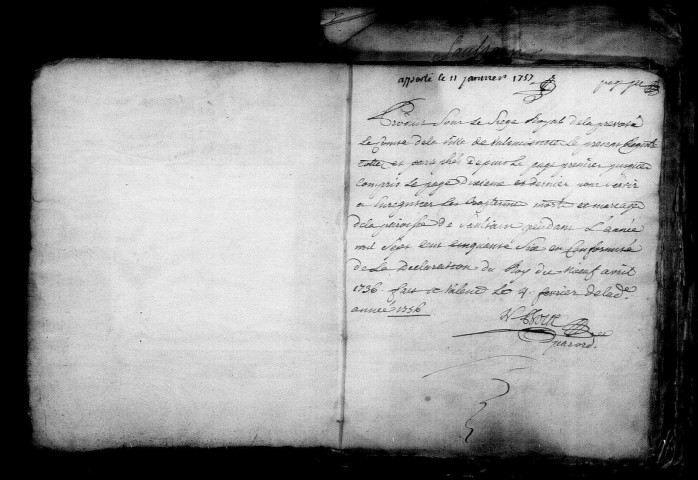 Saultain
apporté le 11 janvier 1757
pag pre
Pour le Siege Royal de la prevosté
le Comté de la Ville de Valenciennes le present Registre
Cotté et paraphé depuis la page premier jusques
compris la page dixieme et dernier pour servir
a Enregistrer les Baptesme morts et mariage
de la paroisse de Saultain pendant L'année
mil sept cent cinquante Six en Conformité
de La Declaration du Roy du Neuf avril
1736. fait a Valenc le 4. fevrier de lad.
année 1756
par ord.